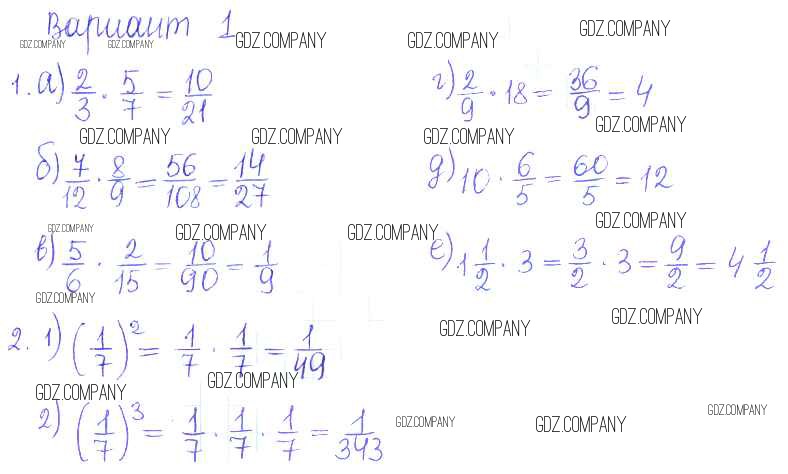 Вариант 1
GDZ.COMPANY GDZ.COMPANY GDZ.COMPANY GDZ.COMPANY GDZ.COMPANY
1. а) 2/3 · 5/7 = 10/21
г) 2/9 · 18 = 36/9 = 4
GDZ.COMPANY GDZ.COMPANY GDZ.COMPANY GDZ.COMPANY
б) 7/12 · 8/9 = 56/108 = 14/27
д) 10 · 6/5 = 60/5 = 12
GDZ.COMPANY GDZ.COMPANY GDZ.COMPANY GDZ.COMPANY
в) 5/6 · 2/15 = 10/90 = 1/9
е) 1 1/2 · 3 = 3/2 · 3 = 9/2 = 4 1/2
GDZ.COMPANY GDZ.COMPANY GDZ.COMPANY
2. 1) (1/7)² = 1/7 · 1/7 = 1/49
GDZ.COMPANY GDZ.COMPANY
2) (1/7)³ = 1/7 · 1/7 · 1/7 = 1/343
GDZ.COMPANY GDZ.COMPANY GDZ.COMPANY